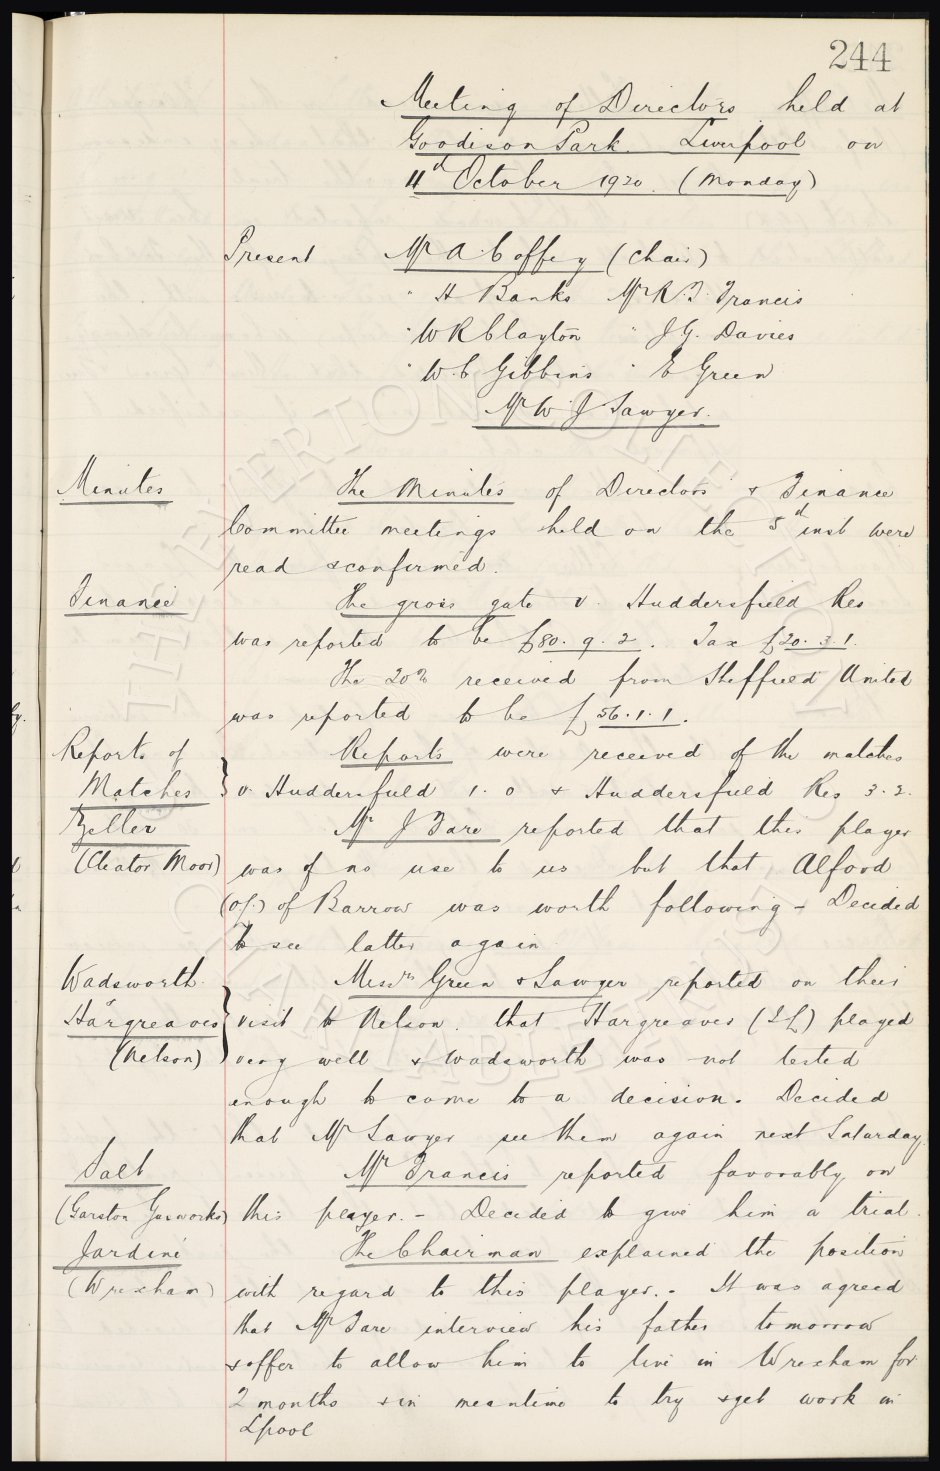 244
Meeting of Directors held at
Goodison Park. Liverpool on
11d October 1920. (Monday)
Present Mr A. Coffey (Chair)
" H Banks Mr R. T. Francis
" W R Clayton " J G. Davies
" W. C Gibbins " E Green
Mr W J Sawyer.
Minutes The Minutes of Directors & Finance
Committee meetings held on the 5d inst were
read & confirmed.
Finance The gross gate v. Huddersfield Res
was reported to be £80. 9. 2. Tax £20. 3. 1.
The 20% received from Sheffield United
was reported to be £56. 1. 1.
Reports of Reports were received of the matches
Matches v. Huddersfield 1. 0 & Huddersfield Res 3. 2.
Zeller Mr J Fare reported that this player
(Cleator Moor) was of no use to us but that Alford
(of.) of Barrow was worth following - Decided
to see latter again
Wadsworth. Messrs Green & Sawyer reported on their
Hargreaves visit to Nelson. that Hargreaves (I L) played
(Nelson) very well & Wadsworth was not tested
enough to come to a decision. Decided
that Mr Sawyer see them again next Saturday.
Salt Mr Francis reported favorably on
(Garston Gasworks) this player. - Decided to give him a trial.
Jardine The Chairman explained the position
(Wrexham) with regard to this player. - It was agreed
that Mr Fare interview his father tomorrow
& offer to allow him to live in Wrexham for
2 months & in meantime to try & get work in
Lpool
THE EVERTON COLLECTION
CHARITABLE TRUST